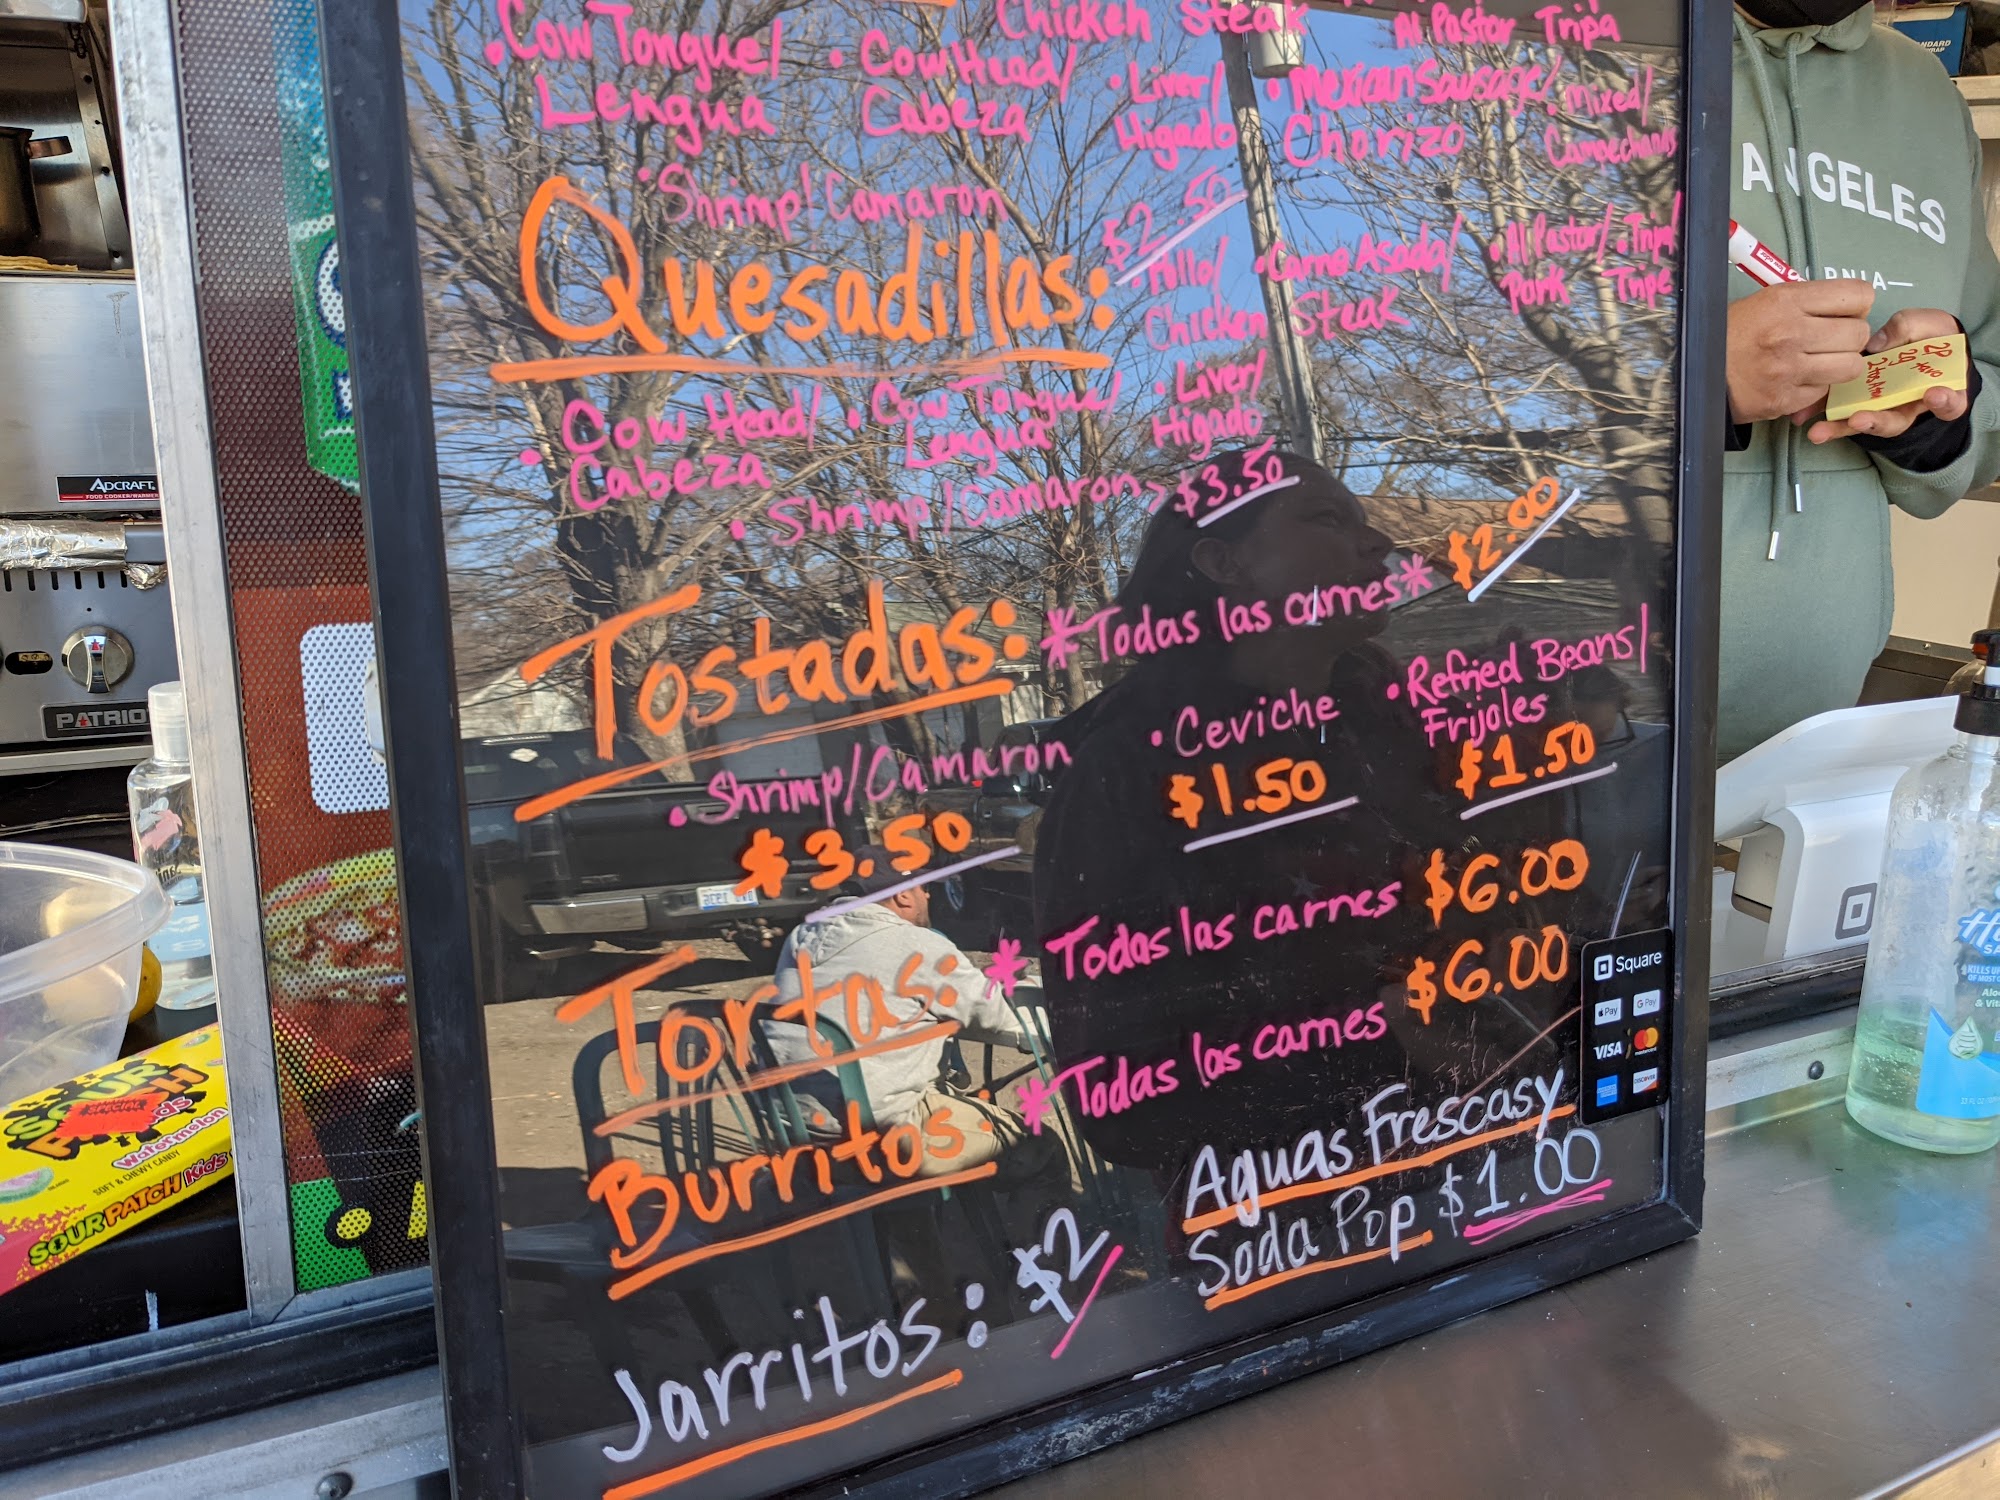 Chicken Steak Al Pastor Tripa
• Cow Tongue/ • Cow Head/ • Liver/ • Mexican Sausage/ • Mixed/
Lengua Cabeza Higado Chorizo
• Shrimp/Camaron
Quesadillas: $2.50
• Pollo/ • Carne Asada/ • Al Pastor/ • Tripa/
Chicken Steak Pork Tripe
• Cow Head/ • Cow Tongue/ • Liver/
Cabeza Lengua Higado
• Shrimp/Camaron > $3.50
Tostadas: *Todas las carnes* $2.00
• Shrimp/Camaron • Ceviche • Refried Beans/
Frijoles
$3.50 $1.50 $1.50
Tortas: * Todas las carnes $6.00
Burritos: *Todas las carnes $6.00
Aguas Frescas y
Soda Pop $1.00
Jarritos: $2
Square
Pay G Pay
VISA mastercard
DISCOVER
ANGELES
ADCRAFT
FOOD COOKER/WARMER
PATRIO
SOUR
PATCH
Kids
Watermelon
SOFT & CHEWY CANDY
SOUR PATCH Kids